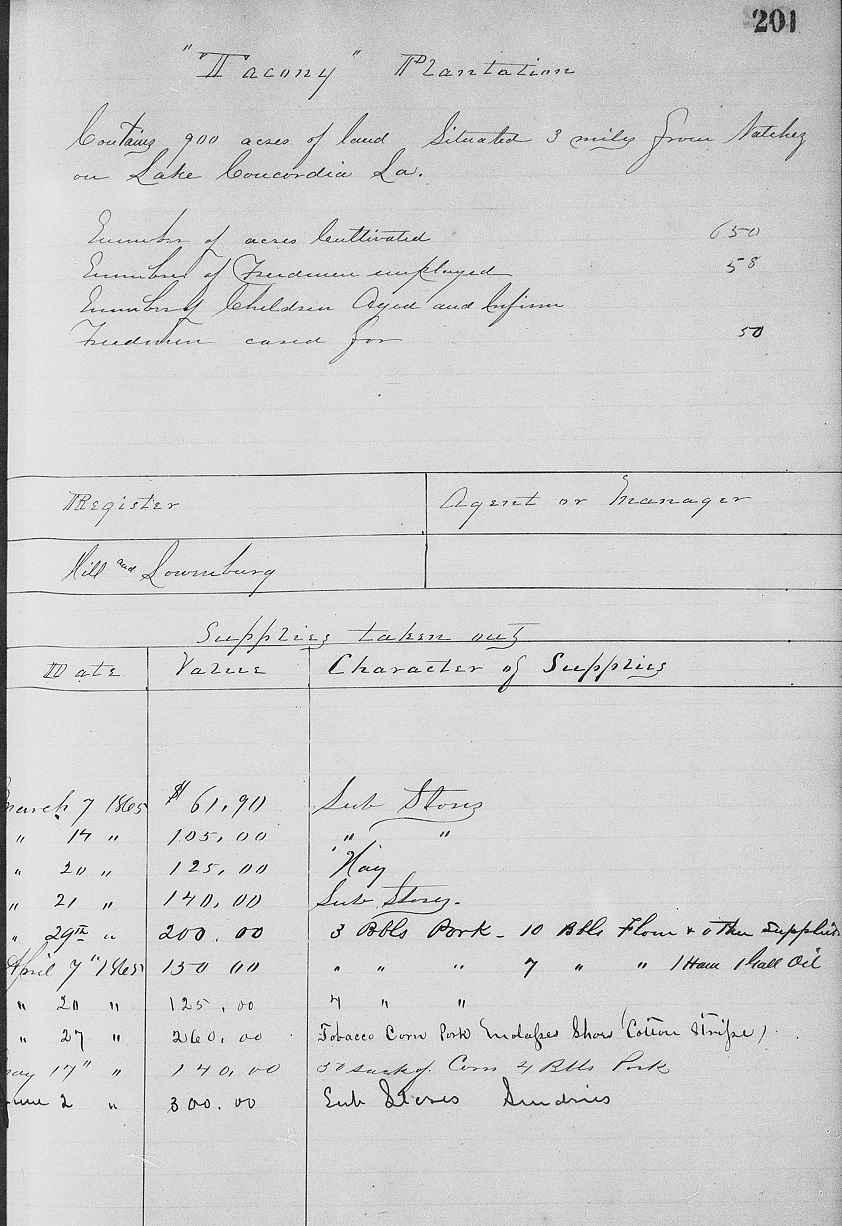 201
"Tacony" Plantation
Contains 900 acres of land Situated 3 miles from Natchez
on Lake Concordia La.
Number of acres Cultivated 650
Number of Freedmen employed 58
Number of Children Aged and Infirm
Freedmen cared for 50
Register Agent or Manager
Hill and Lounsburg
Supplies taken out
Date Value Character of Supplies
March 7 1865 $ 61.90 Sub Stores
" 14 " 105.00 " "
" 20 " 125.00 Hay
" 21 " 140.00 Sub Stores.
" 29th " 200.00 3 Bbls Pork - 10 Bbls Flour & other Supplies
April 7" 1865 150 00 " " " 7 " " 1 Ham 1 Gall Oil
" 20 " 125.00 4 " "
" 27 " 260.00 Tobacco Corn Pork Molasses Shoes (Cotton Stripe)
May 17" " 140.00 50 sacks of Corn 4 Bbls Pork
June 2 " 300.00 Sub Stores Sundries